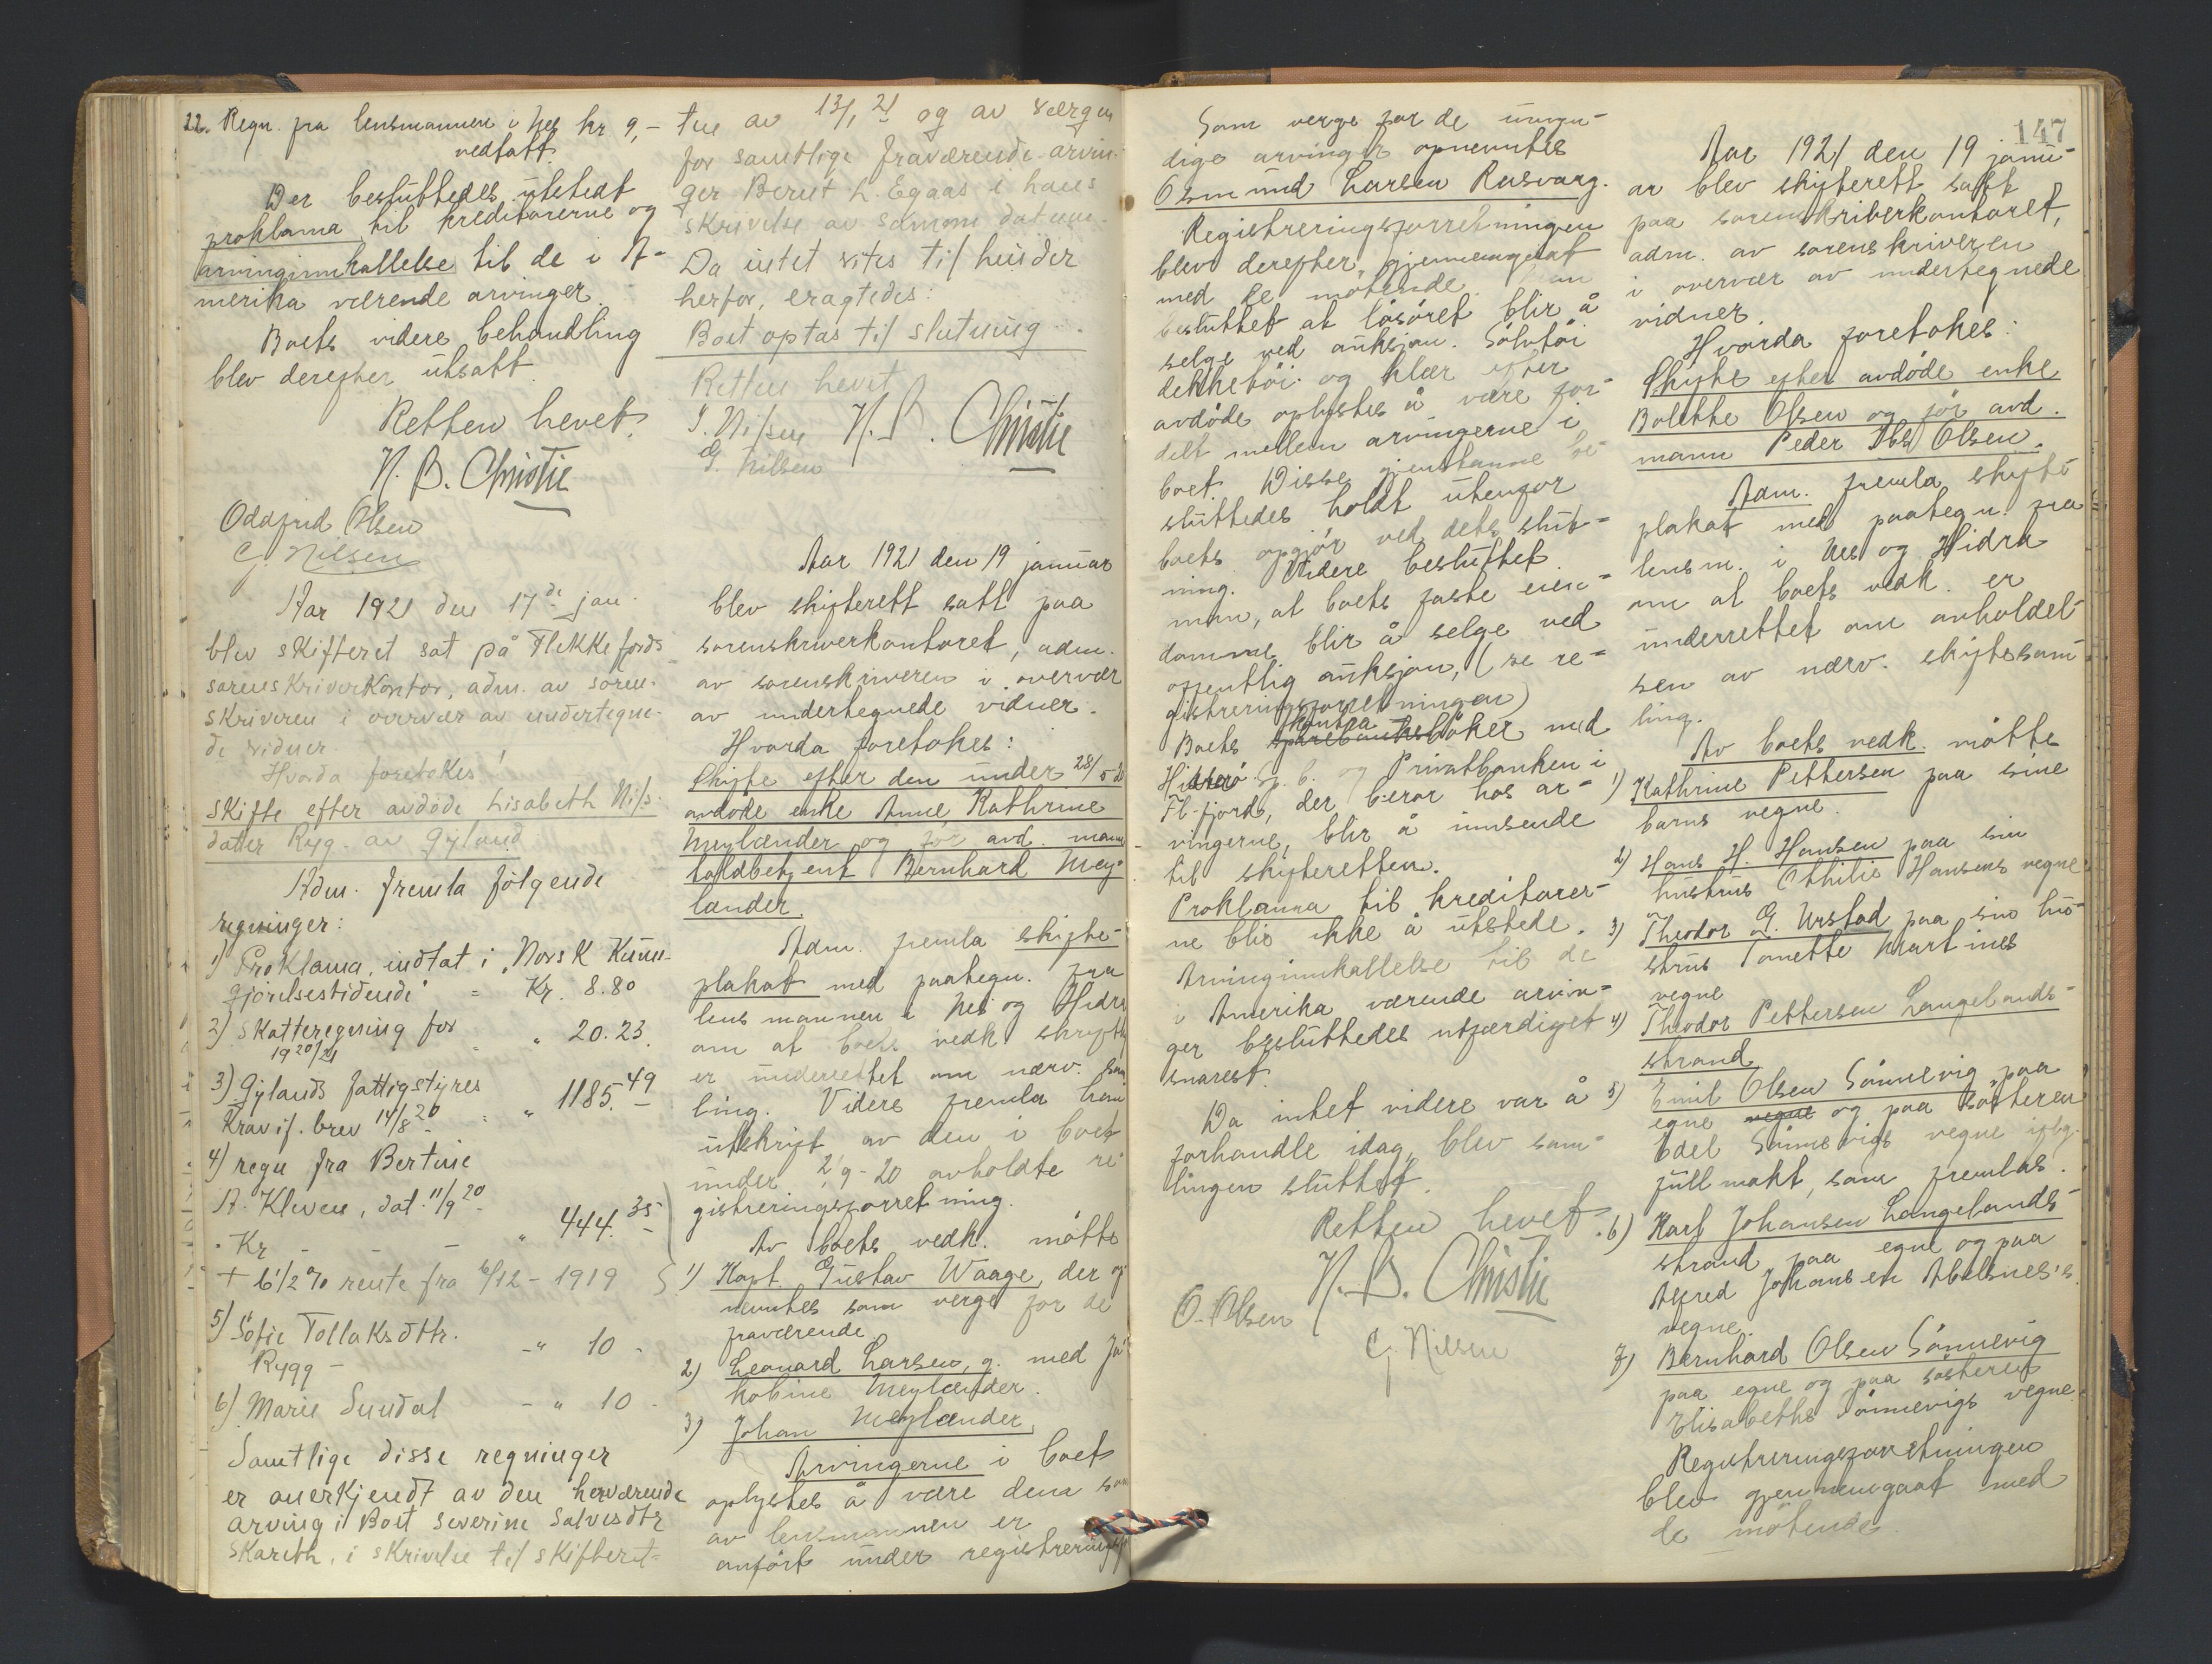 22. Regn. fra lensmannen i Nes kr 9,-
vedtatt.
Der besluttedes utstedt
proklama til kreditorerne og
arvinginnkallelse til de i A-
merika værende arvinger.
Boets videre behandling
blev derefter utsatt.
Retten hevet.
N. B. Christie
Oddfrid Olsen
C. Nilsen
Aar 1921 den 17de jan.
blev skifteret sat på Flekkefjords
sorenskriverkontor, adm. av soren-
skriveren i overvær av undertegne-
de vidner.
Hvorda foretokes:
Skifte efter avdøde Lisabeth Nils-
datter Ryg. av Gyland
Adm. fremla følgende
regninger:
1) Proklama, indtat i "Norsk Kunn-
gjørelsestidende" = Kr. 8.80
2) Skatteregning for
1920/21 " 20.23.
3) Gylands fattigstyres
Krav if. brev 14/8 20 " 1185.49
4) regn fra Bertine
A. Kleven, dat. 11/9 20
. Kr " 444.35
+ 6 1/2 % rente fra 6/12 - 1919
5) Sofie Tollaksdttr.
Rygg - -" 10 -
6) Marie Sundal - " 10 -
Samtlige disse regninger
er anerkjendt av den herværende
arving i Boet Severine Salvesdtr
Skareth, i skrivelse til skifteret-
ten av 13/1 21 og av værgen
for samtlige fraværende arvin-
ger Berut L. Egaas i hans
skrivelse av samme datum.
Da intet vites til hinder
herfor, eragtedes:
Boet optas til slutning.
Retten hevet
N. B. Christie
J. Nilsen
G. Nilsen
Aar 1921 den 19 januar
blev skifterett satt paa
sorenskriverkontoret, adm.
av sorenskriveren i overvær
av undertegnede vidner.
Hvorda foretokes:
Skifte efter den under 28/5 20
avdøde enke Anne Kathrine
Meylænder og før avd. mann
toldbetjent Bernhard Mey-
lænder.
Adm. fremla skifte-
plakat med paategn. fra
lensmannen i Nes og Hidra
om at boets vedk. skrifth
er underrettet om nærv. sam
ling. Videre fremla han
utskrift av den i boet
under 2/9-20 avholdte re-
gistreringsforretning.
Av boets vedk. møtte
1) Kapt. Gustav Waage, der op
nevntes som verge for de
fraværende
2) Leonard Larsen, g. med Ja-
kobine Meylænder.
3) Johan Meylænder
Arvingerne i boet
oplystes å være dem som
av lensmannen er
anført under registrerings
147
Som verge for de umyn-
dige arvinger opnevntes
Osmund Larsen Rasvaag.
Registreringsforretningen
blev derefter gjennemgaat
med de møtende.
besluttet at løsøret blir å
selge ved auksjon. Sølvtøi
dekketøi og klær efter
avdøde oplystes å være for-
delt mellem arvingerne i
boet. Disse gjenstanne be-
sluttedes holdt utenfor
boets opgjør ved dets slut-
ning. Videre besluttet
man, at boets faste eien-
domme blir å selge ved
offentlig auksjon, (se re-
gistreringsforretningen)
kontra
Boets sparebanksbøker med
Hitterø Sp. b. og Privatbanken i
Fl.fjord, der beror hos ar-
vingerne, blir å innsende
til skifteretten.
Proklama til kreditorer-
ne blir ikke å utstede.
Arvinginnkallelse til de
i Amerika værende arvin-
ger besluttedes utfærdiget
snarest.
Da intet videre var å
forhandle idag, blev sam-
lingen sluttet.
Retten hevet.
N. B. Christie
O. Olsen
C. Nilsen
Aar 1921 den 19 janu-
ar blev skifterett satt
paa sorenskriverkontoret,
adm. av sorenskriveren
i overvær av undertegnede
vidner.
Hvorda foretokes:
Skifte efter avdøde enke
Bolette Olsen og før avd.
mann Peder Olsen.
Adm. fremla skifte
plakat med paategn. fra
lensm. i Nes og Hidra
om at boets vedk. er
underrettet om avholdel-
sen av nærv. skiftesam-
ling.
Av boets vedk. møtte
1) Kathrine Pettersen paa sine
barns vegne.
2) Hans H. Hansen paa sin
hustrus Othilie Hansens vegne.
3) Theodor G. Urstad paa sin hu-
strus Tonette Martines
vegne
4) Theodor Pettersen Langelands-
strand
5) Emil Olsen Sønnevig paa
egne vegne og paa søsteren
Edel Sønnevigs vegne iflg.
fullmakt, som fremlas.
6) Karl Johansen Langelands-
strand paa egne og paa
Alfred Johansen Abelsnes's
vegne.
7) Bernhard Olsen Sønnevig
paa egne og paa søsteren
Elisabeths Sønnevigs vegne.
Registreringsforretningen
blev gjennemgaat med
de møtende.